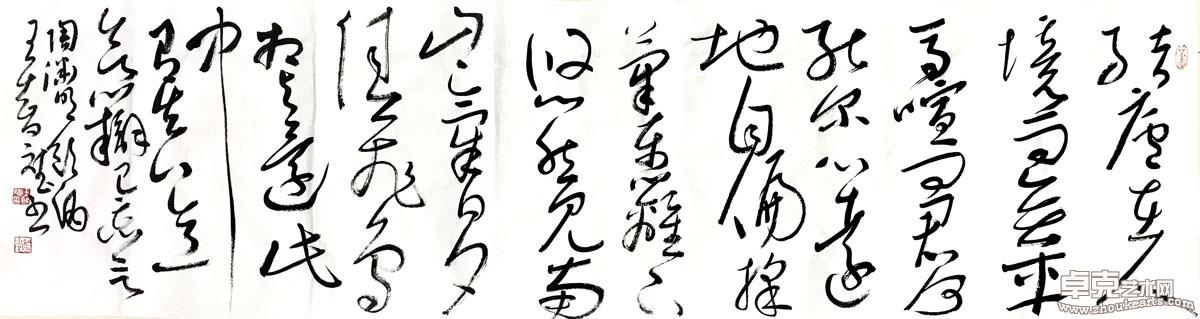 结庐在人
境而无车
马喧问君何
能尔心远
地自偏採
菊东篱下
悠然见南
山山气日夕
佳飞鸟
相与还此
中
有真意
欲辩已忘言
陶渊明饮酒
王 书
卓克艺术网
www.zhoukearts.com